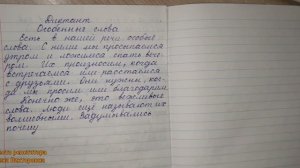 Диктант
Особенные слова
Есть в нашей речи особые
слова. С ними мы просыпаемся
утром и ложимся спать вече-
ром. Их произносим, когда
встречаемся или расстаёмся
с друзьями. Они нужны, ког-
да мы просим или благодарим.
Конечно же, это вежливые
слова. Люди ещё называют их
волшебными. Задумывались
почему